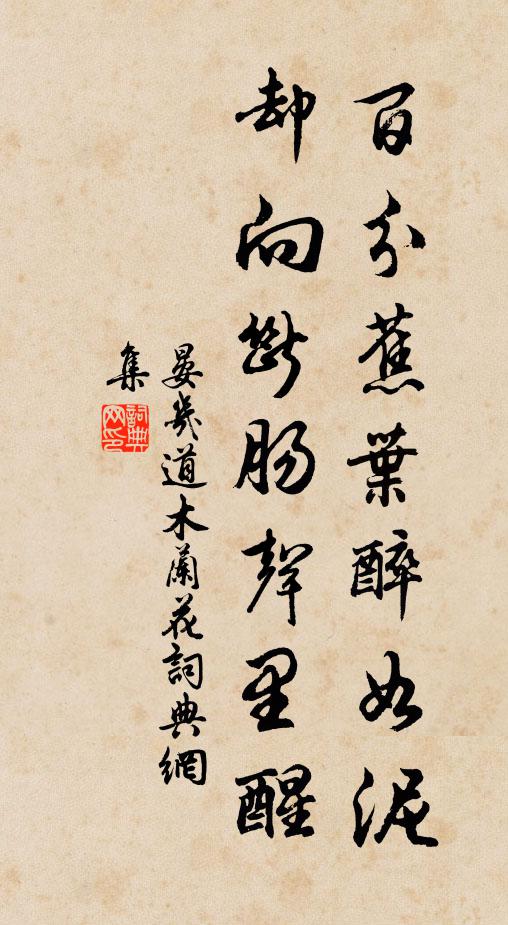 百分蕉葉醉如泥
却向斷腸聲里醒
晏幾道木蘭花詞典網
集
詞典
网印